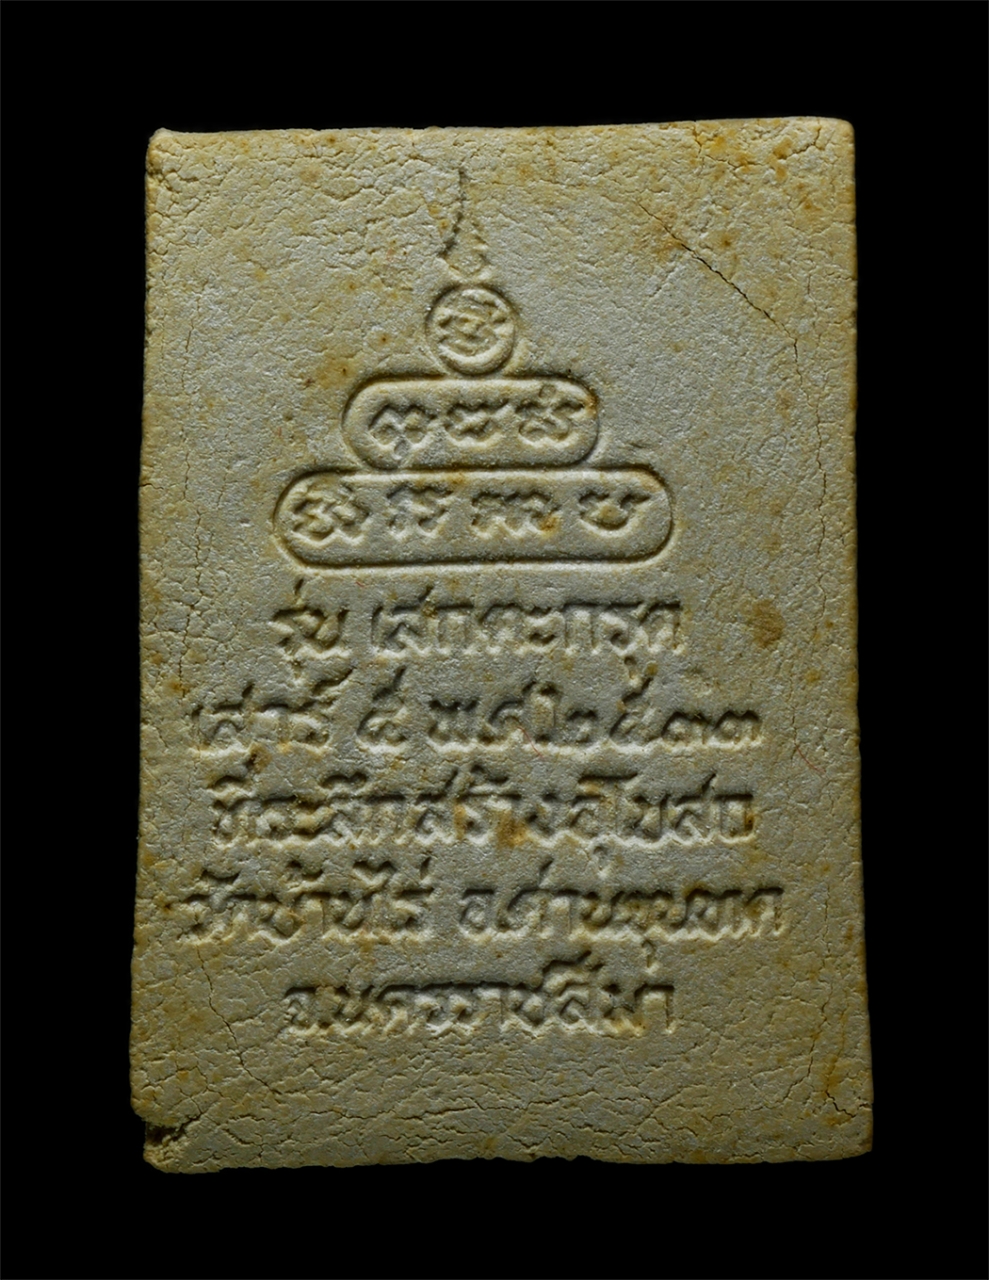 รุ่น เสกตะกรุด
เสาร์ ๕ พ.ศ.๒๕๓๓
ที่ระลึกสร้างอุโบสถ
วัดบ้านไร่ อ.ด่านขุนทด
จ.นครราชสีมา